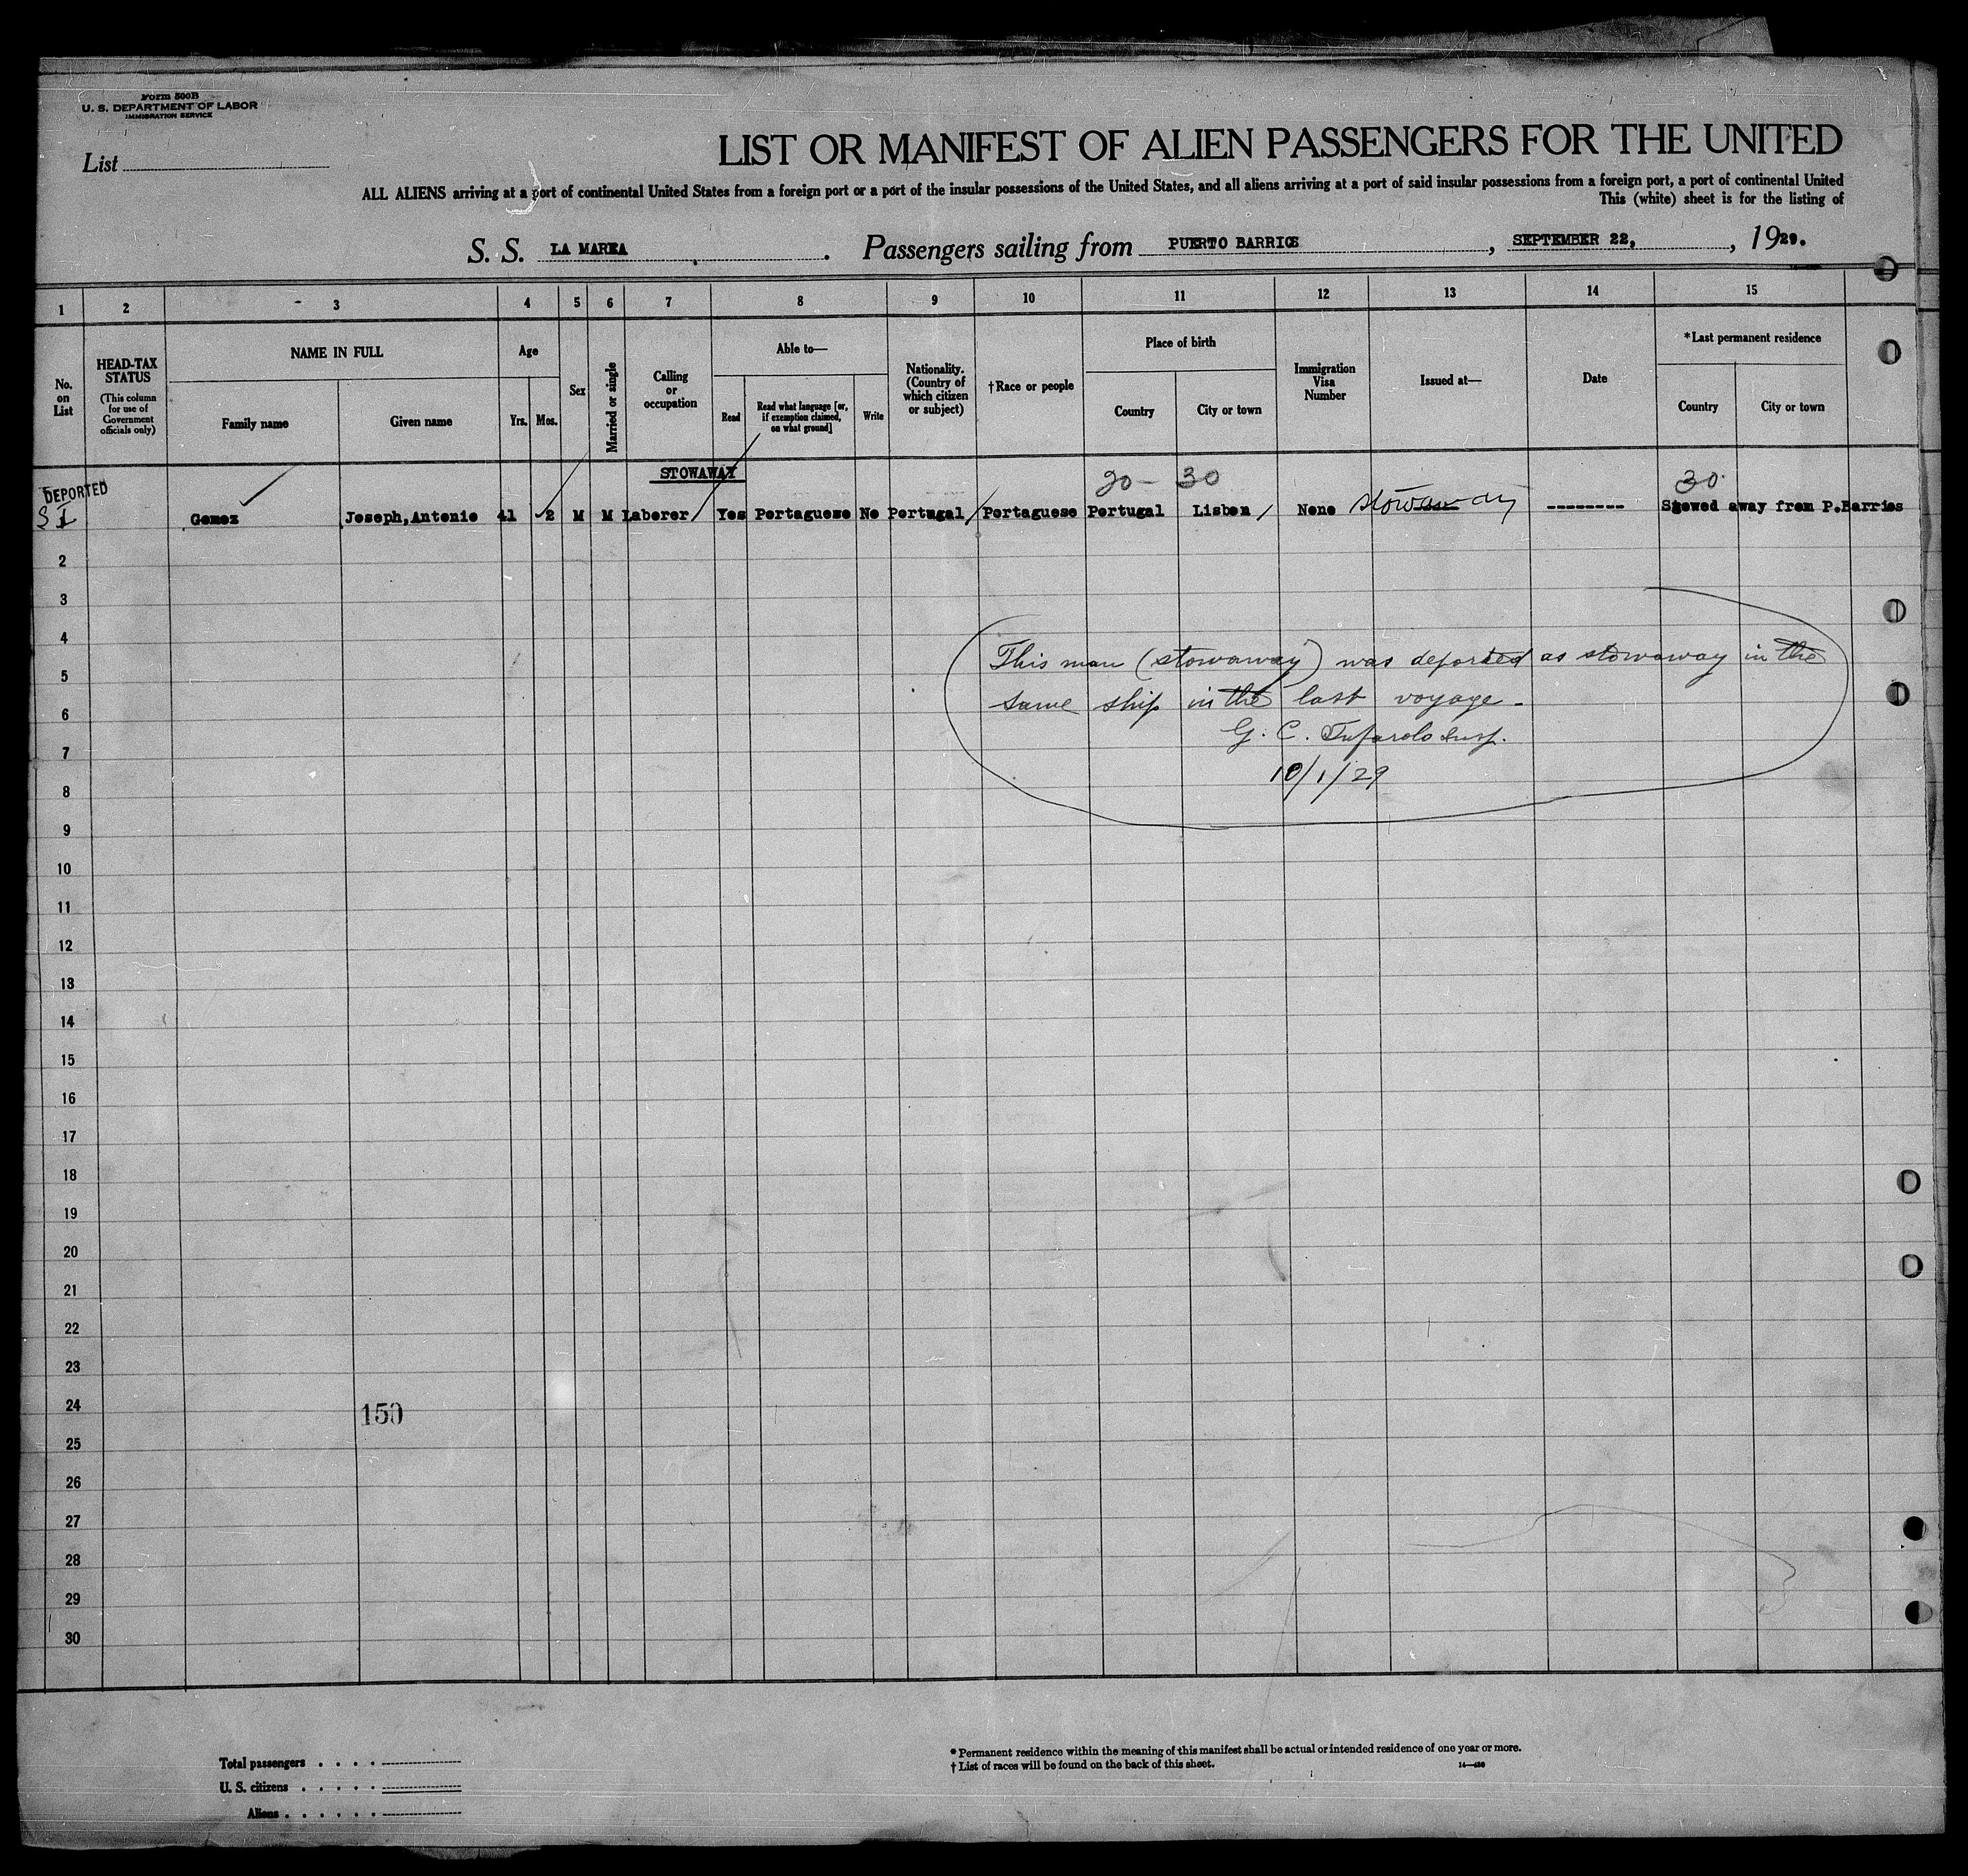 Form 500B
U. S. DEPARTMENT OF LABOR
IMMIGRATION SERVICE
List
LIST OR MANIFEST OF ALIEN PASSENGERS FOR THE UNITED
ALL ALIENS arriving at a port of continental United States from a foreign port or a port of the insular possessions of the United States, and all aliens arriving at a port of said insular possessions from a foreign port, a port of continental United
This (white) sheet is for the listing of
S. S. LA MAREA. Passengers sailing from PUERTO BARRIOS, SEPTEMBER 22, , 1929.
1 2 3 4 5 6 7 8 9 10 11 12 13 14 15
No. on List
HEAD-TAX STATUS (This column for use of Government officials only)
NAME IN FULL
Family name
Given name
Age
Yrs.
Mos.
Sex
Married or single
Calling or occupation
Able to—
Read
Read what language [or, if exemption claimed, on what ground]
Write
Nationality. (Country of which citizen or subject)
†Race or people
Place of birth
Country
City or town
Immigration Visa Number
Issued at—
Date
*Last permanent residence
Country
City or town
STOWAWAY
20 - 30
30
DEPORTED
SI Gomez Joseph,Antonio 41 2 M M Laborer Yes Portuguese No Portugal Portuguese Portugal Lisbon None Stowaway -------- Stowed away from P.Barrios
2
3
4
This man (stowaway) was deported as stowaway in the
5
same ship in the last voyage -
6
G. C. Tufarolo Insp.
7
10/1/29
8
9
10
11
12
13
14
15
16
17
18
19
20
21
22
23
24
150
25
26
27
28
29
30
Total passengers
U. S. citizens
Aliens
* Permanent residence within the meaning of this manifest shall be actual or intended residence of one year or more.
† List of races will be found on the back of this sheet.